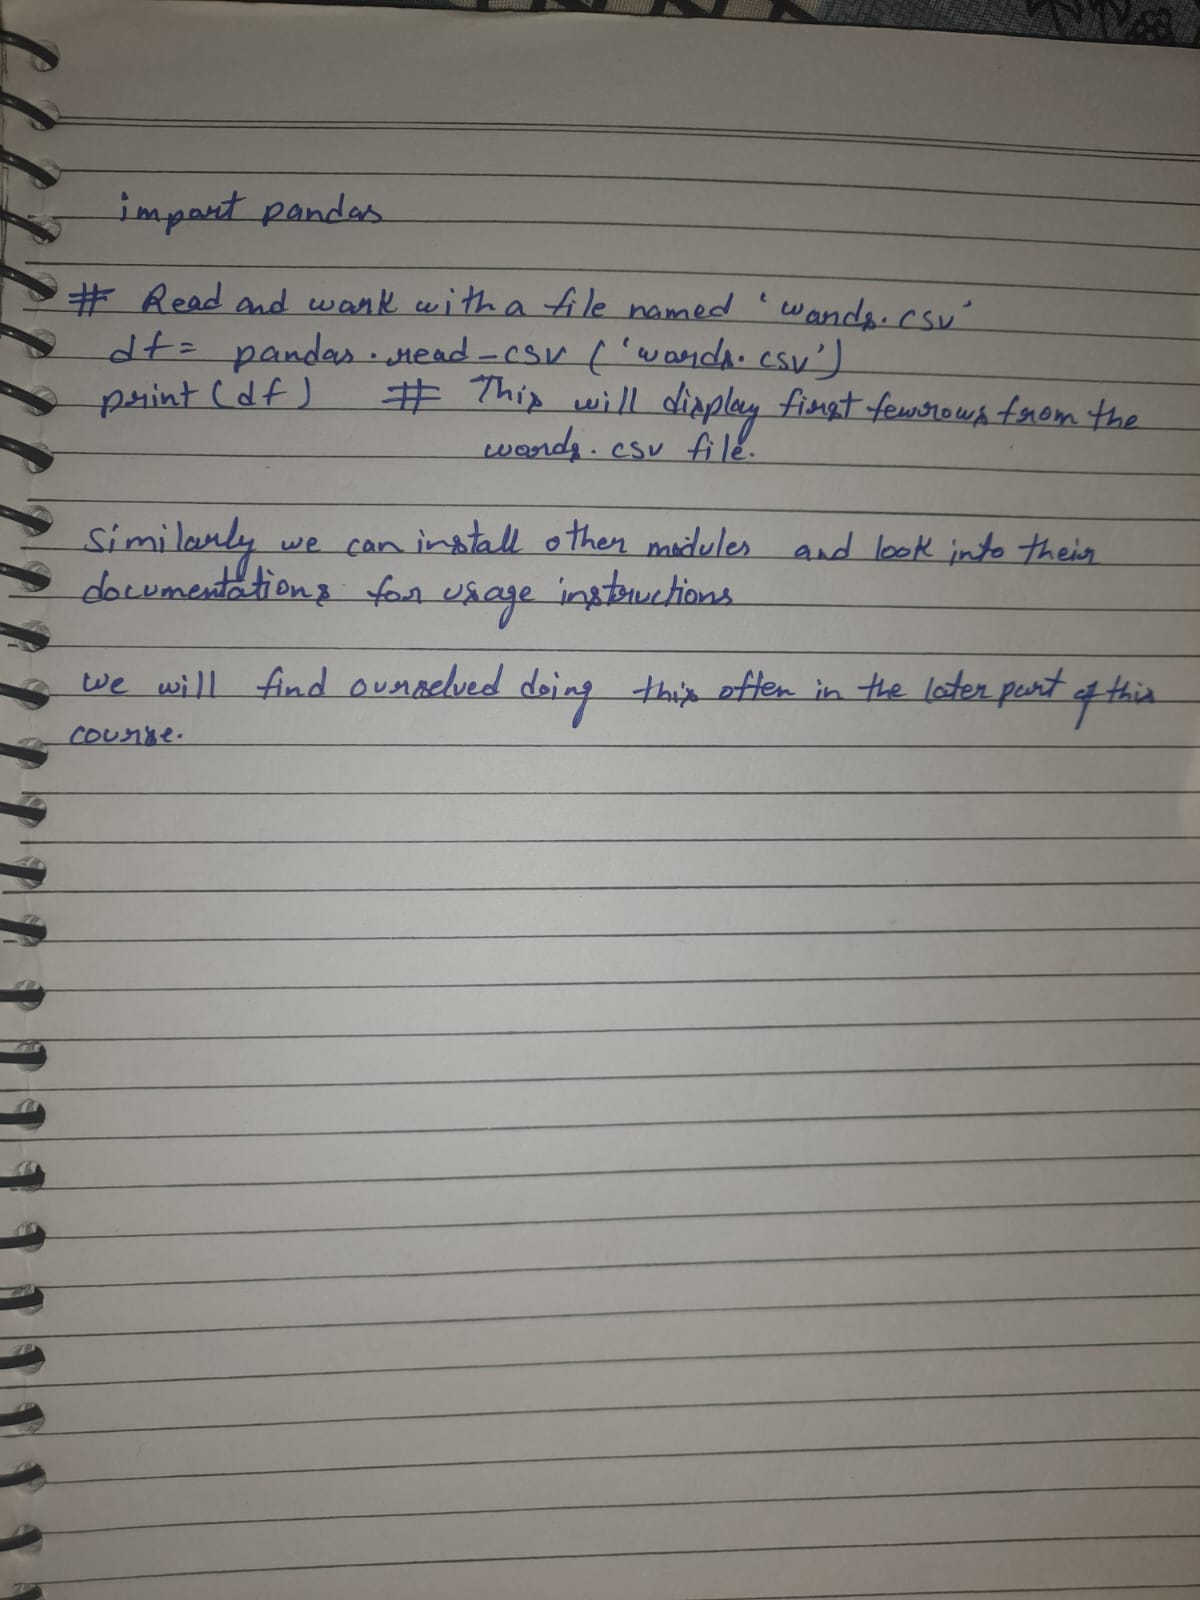 import pandas
# Read and work with a file named 'words.csv'
df = pandas.read_csv ('words.csv')
print(df) # This will display first few rows from the
words.csv file.
Similarly we can install other modules and look into their
documentations for usage instructions
we will find ourselved doing this often in the later part of this
course.